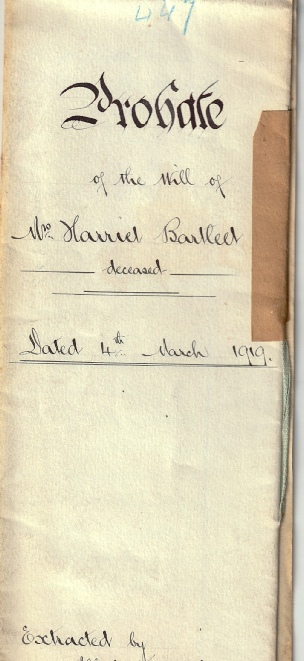 447
Probate
of the Will of
Mrs. Harriet Bartleet
deceased
Dated 4th March 1919.
Extracted by